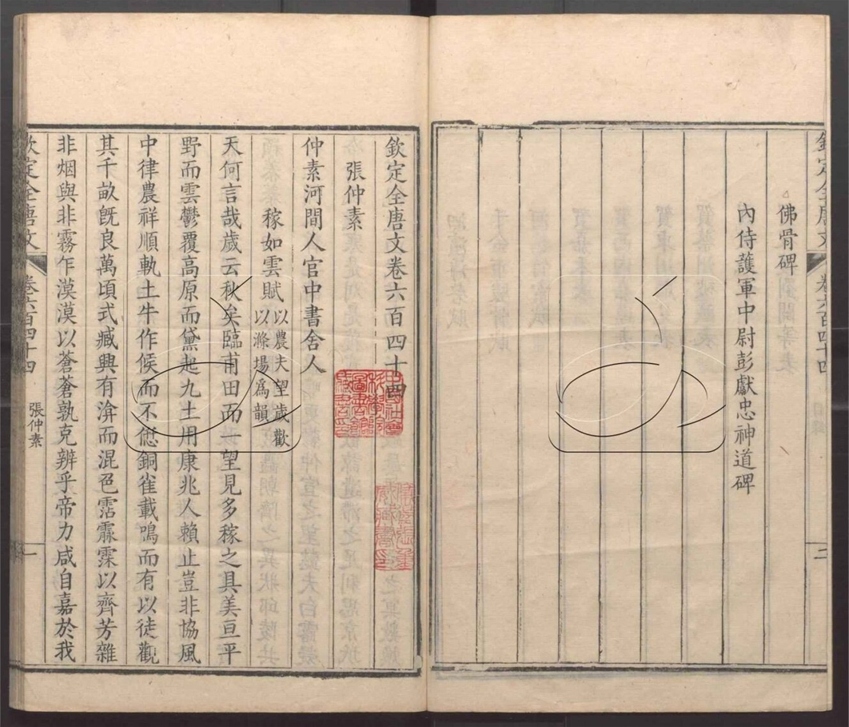 欽定全唐文
卷六百四十四
二
佛骨碑
內侍護軍中尉彭獻忠神道碑
欽定全唐文卷六百四十四
張仲素
仲素河間人官中書舍人
稼如雲賦以農夫望歲歡以滌場為韻
天何言哉歲云秋矣臨甫田而一望見多稼之具美亘平
野而雲鬱覆高原而黛起九土用康兆人賴止豈非協風
中律農祥順軌土牛作候而不愆銅雀載鳴而有以徒觀
其千畝旣良萬頃式臧興有渰而混色霑霢霂以齊芳雜
非烟與非霧乍漠漠以蒼蒼孰克辨乎帝力咸自嘉於我
欽定全唐文
卷六百四十四
張仲素
一